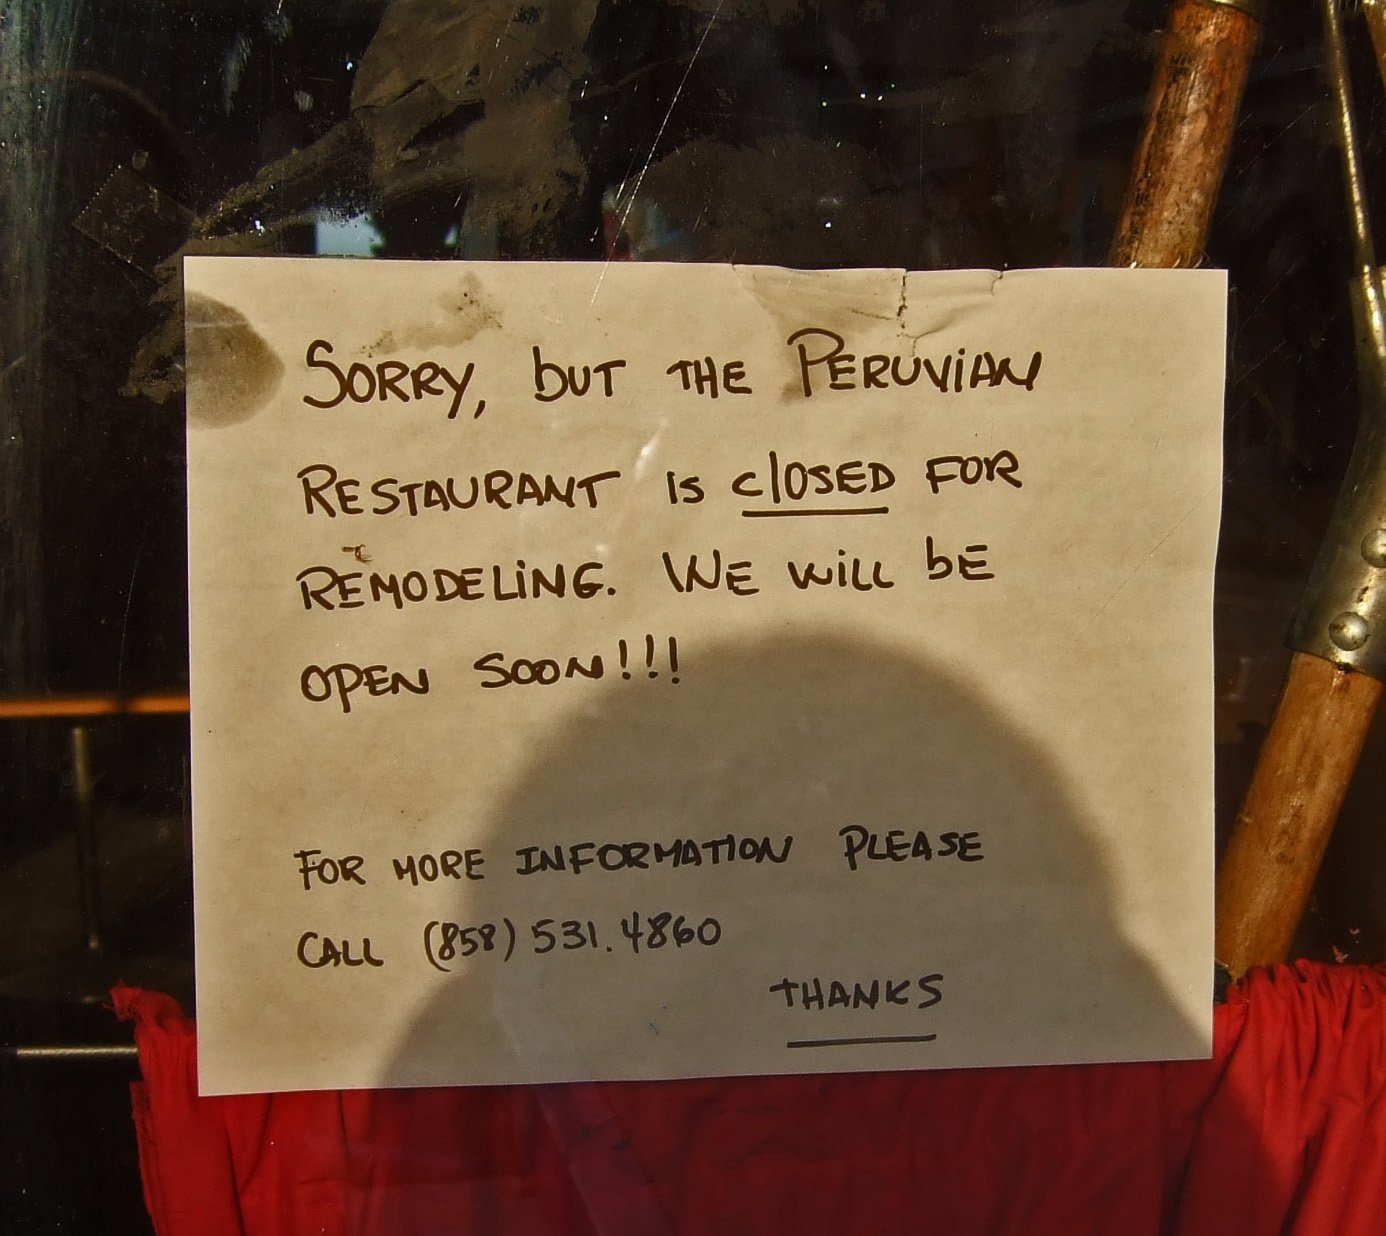 SORRY, bUT THE PERUViAN
RESTAURANT iS clOSED FOR
REMODELiNG. WE WiLL bE
OPEN SOON!!!
FOR MORE INFORMATION PLEASE
CALL (858) 531.4860
THANKS